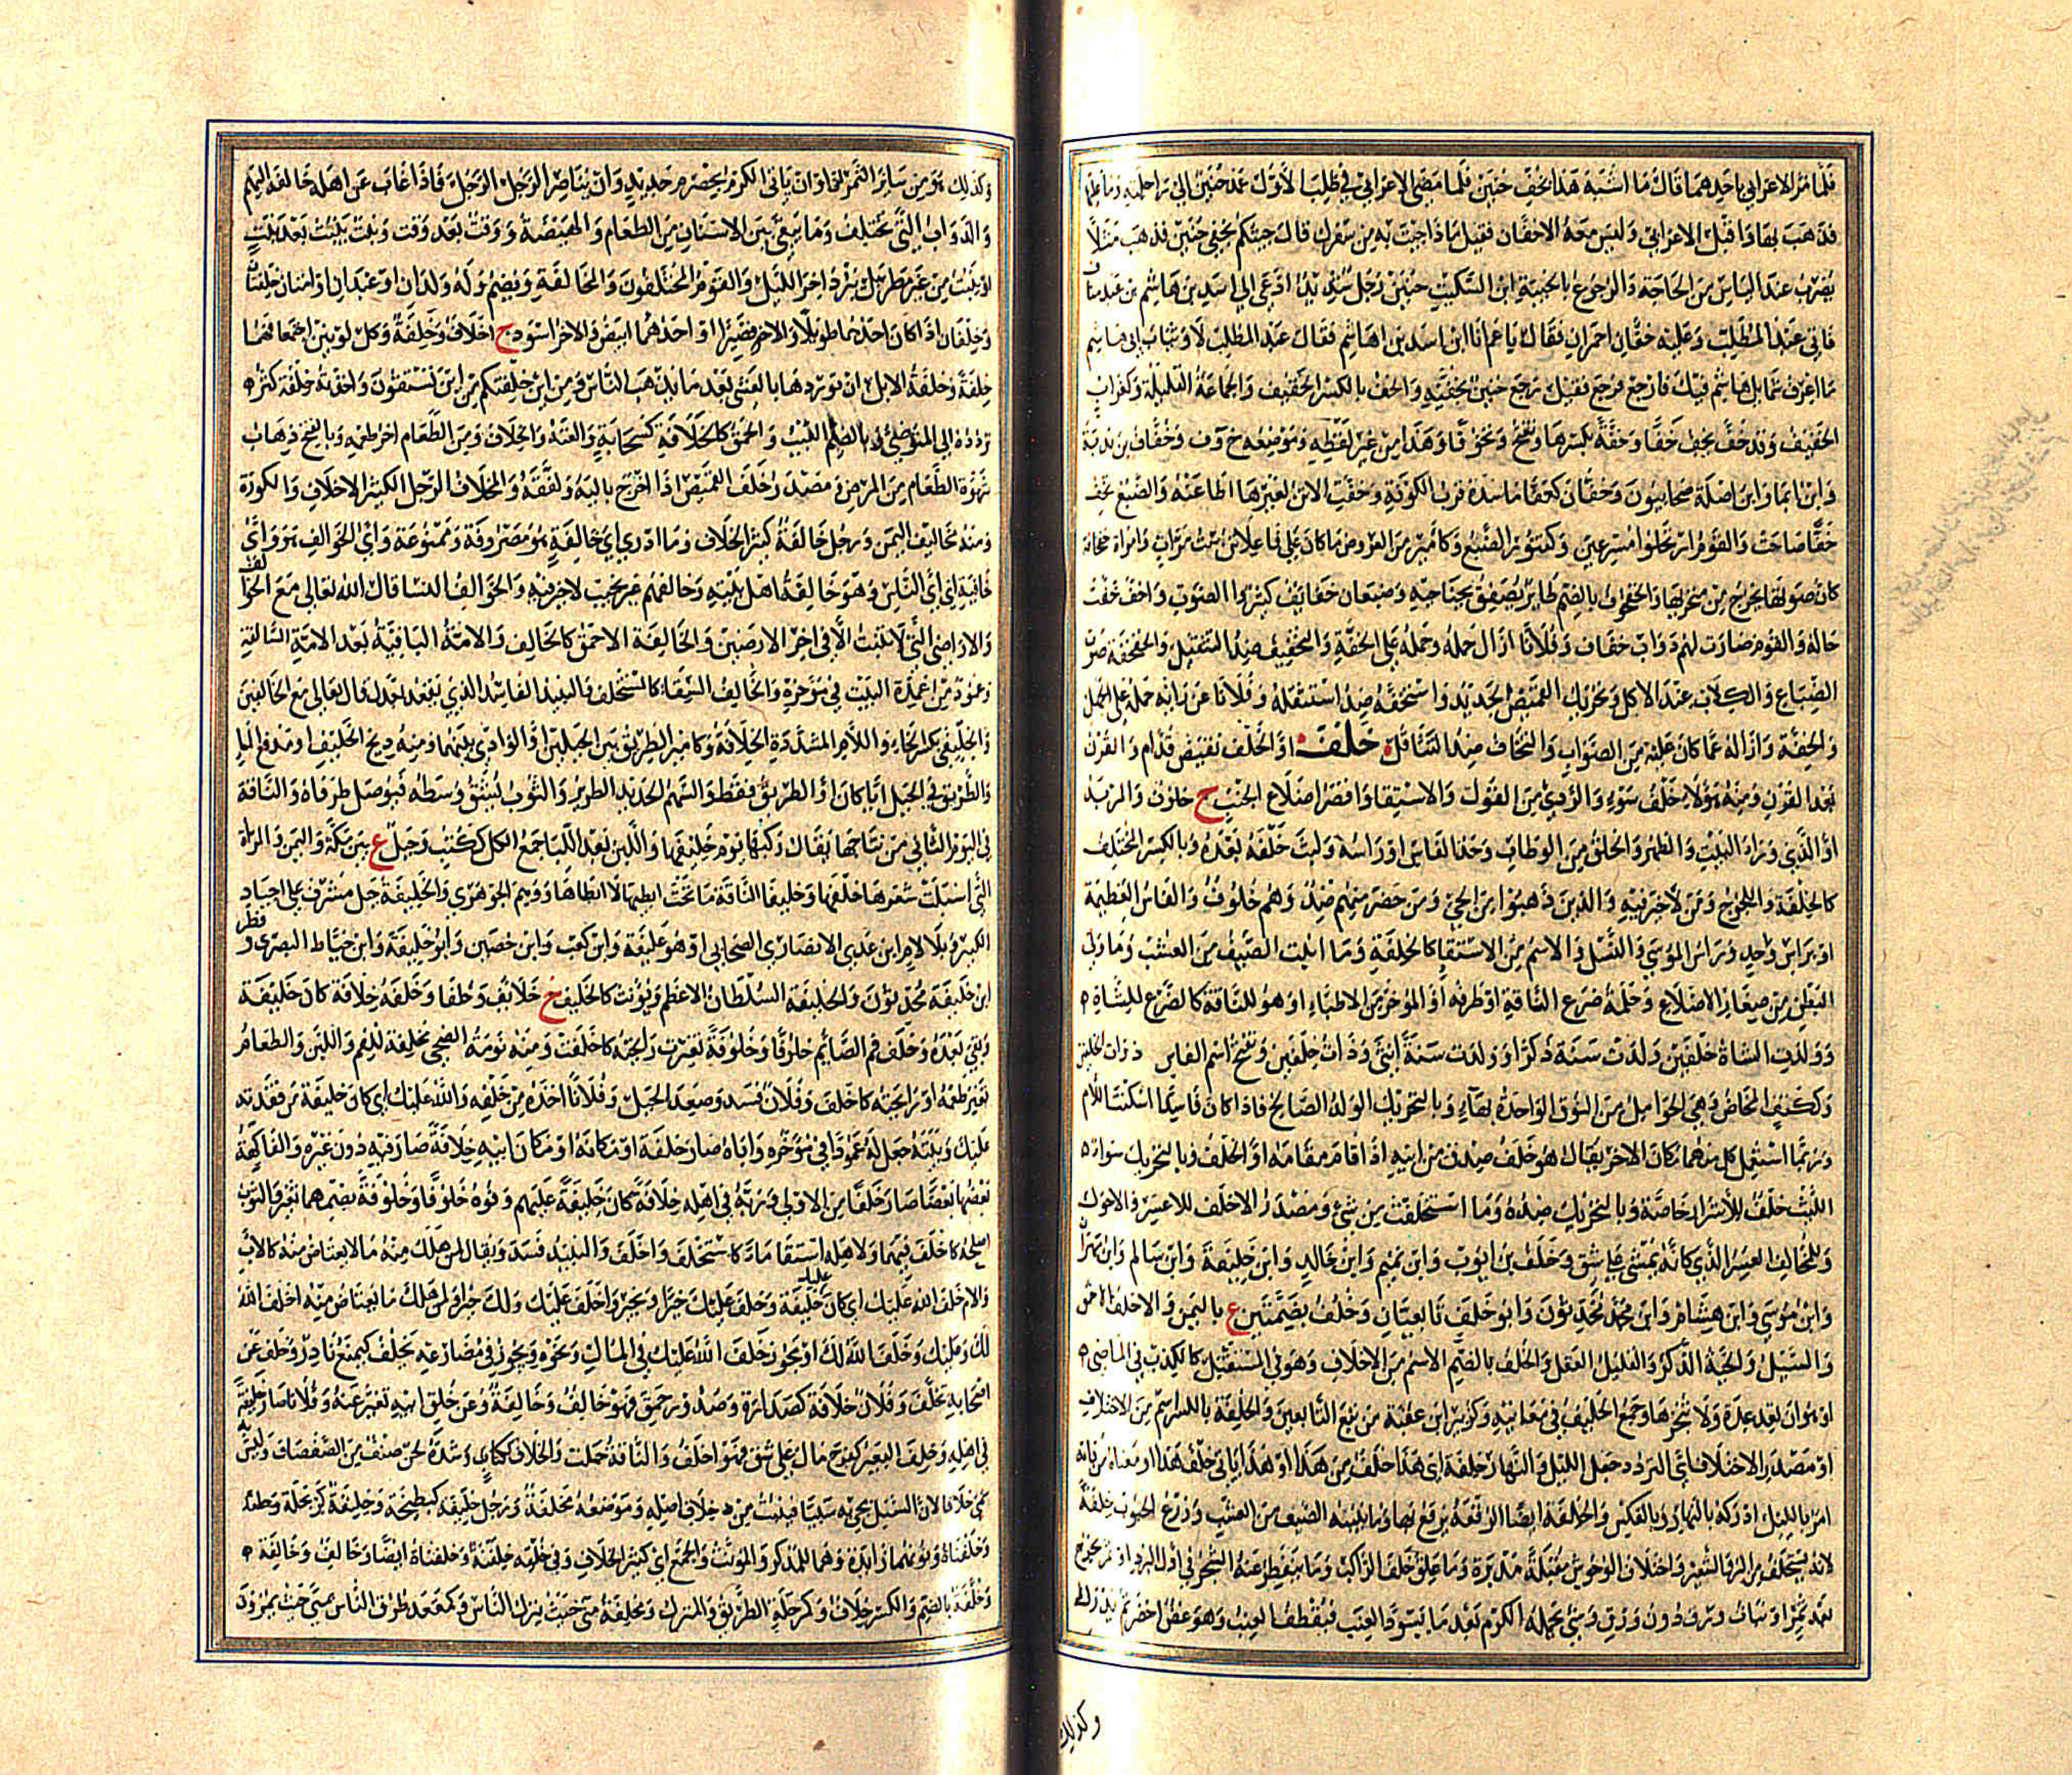 فلما مر الاعرابي باحدهما قال ما اشبه هذا بخف حنين فلما مضى الاعرابي في طلب الاول عمد حنين الى راحلته وما عليها
فذهب بها واقبل الاعرابي وليس معه الا خفان فقيل ماذا جئت به من سفرك قال جئتكم بخفي حنين فذهب مثلا
يضرب عند الياس من الحاجة والرجوع بالخيبة ابن السكيت حنين رجل شديد ادعى الى اسد بن هاشم بن عبد مناف
فاتى عبد المطلب وعليه خفان احمران فقال يا عم انا ابن اسد بن هاشم فقال عبد المطلب لا وثياب ابي هاشم
ما اعرف شمايل هاشم فيك فارجع فرجع فقيل رجع حنين بخفيه والخف بالكسر الخفيف والجماعة القليلة وكغراب
الخفيف وقد خف يخف خفا وخفة بكسرها وتفتح وتخوفا وهذا من غير لفظه وموضعه خ و ف وخفاف بن ندبة
وابن ايما وابن نضلة صحابيون وخفان كعفان ماسدة قرب الكوفة وخفت الاتن لعيرها اطاعته والضبع تخف
خفا صاحت والقوم ارتحلوا مسرعين وكتنور الضبع وكامير من العروض ما كان على فاعلاتن مستفعلن مرات وامراة خفخافة
كان صوتها يخرج من منخريها والخفخوف بالضم طاير يصفق بجناحيه وضبعان خفاخف كثيرا الصوت واخف خفت
حاله والقوم صارت لهم دواب خفاف وفلانا ازال حلمه وحمله على الخفة والتخفيف ضد التثقيل والخفخفة صوت
الضباع والكلاب عند الاكل وتحريك القميص الجديد واستخفه ضد استثقله وفلانا عن رايه حمله على الجهل
والخفة وازاله عما كان عليه من الصواب والتخاف ضد التثاقل خلف او الخلف نقيض قدام والقرن
بعد القرن ومنه هؤلاء خلف سوء والردي من القول والاستقاء واقصر اضلاع الجنب ج خلوف والمربد
او الذي وراء البيت والظهر والخلق من الوطاب وحد الفاس او راسه ولبث خلفه بعده وبالكسر المختلف
كالخلفة واللجوج ومن لا خير فيه والذين ذهبوا من الحي ومن حضر منهم ضد وهم خلوف والفاس العظيمة
او براس واحد وراس الموسى والنسل والاسم من الاستقاء كالخلفة وما انبت الصيف من العشب وما ولي
البطن من صغار الاضلاع وحلمة ضرع الناقة او طرفه او المؤخر من الاطباء او هو للناقة كالضرع للشاة
وولدت الشاة خلفين ولدت سنة ذكرا وولدت سنة انثى وذات خلفين وتفتح اسم الفاس ذوات الخلفين
وككتف المخاض وهي الحوامل من النوق الواحدة بهاء وبالتحريك الولد الصالح فاذا كان فاسدا اسكنت اللام
وربما استعمل كل منهما مكان الاخر يقال هو خلف صدق من ابيه اذا اقام مقامه او الخلف وبالتحريك سواء
الليث خلف للاشرار خاصة وبالتحريك ضده وما استخلفت من شيء ومصدر الاخلف للاعسر والاحول
وللمخالف العسر الذي كانه يمشي على شق وخلف بن ايوب وابن تميم وابن خالد وابن خليفة وابن سالم وابن مهران
وابن موسى وابن هشام وابن محمد محدثون وابو خلف تابعيان وخلف بضمتين ع باليمن والاخلف الاحمق
والسيل والحية الذكر والقليل العقل والخلف بالضم الاسم من الاخلاف وهو في المستقبل كالكذب في الماضي
او هو ان تعد عدة ولا تنجزها وجمع الخليف في معانيه وكزبير ابن عقبة من تبع التابعين والخلفة بالكسر الاسم من الاختلاف
او مصدر الاختلاف اي التردد وجعل الليل والنهار خلفة اي هذا خلف من هذا او هذا ياتي خلف هذا او معناه من فاته
امر بالليل ادركه بالنهار وبالعكس والخلفة ايضا الرقعة يرقع بها وما ينبته الصيف من العشب وزرع الحبوب خلفة
لانه يستخلف من البر والشعير واختلاف الوحوش مقبلة مدبرة وما علق خلف الراكب وما يتفطر عنه الشجر في اول البرد او ثمر يخرج
بعد ثمر او نبات ورق دون ورق وشيء يحمله الكرم بعد ما يسود العنب فيقطف العنب وهو غض اخضر ثم يدرك
وكذلك
وكذلك هو من سائر الثمر او ان ياتي الكرم بحصرم جديد وان يناصر الرجل الرجل فاذا غاب عن اهله خالفه اليهم
والدواب التي تختلف وما يبقى بين الاسنان من الطعام والهيضة ووقت بعد وقت ونبت ينبت بعد نبت
او نبت من غير مطر بل ببرد اخر الليل والقوم المختلفون والمخالفة ويضم وله ولدان او عبدان او امتان خلفتان
وخلفان اذا كان احدهما طويلا والاخر قصيرا او احدهما ابيض والاخر اسود ج اخلاف وخلفة وكل لونين اجتمعا فهما
خلفة وخلفة الابل ان توردها بالعشي بعد ما يذهب الناس ومن اين خلفتكم من اين تستقون واخذته خلفة كثر
تردده الى المتوضئ وبالضم العيب والحمق كالخلافة كسحابة والعته والخلاف ومن الطعام اخر طعمه وبالفتح ذهاب
شهوة الطعام من المرض ومصدر خلف القميص اذا اخرج باليه ولفقه والمخلاف الرجل الكثير الاخلاف والكورة
ومنه مخاليف اليمن ورجل خالفة كثير الخلاف وما ادري اي خالفة هو مصروفة وممنوعة واي الخوالف هو واي
خافية اي اي الناس وهو خالفة اهل بيته وخالفهم غير نجيب لا خير فيه والخوالف النسا قال الله تعالى مع الخوالف
والاراضي التي لا تنبت الا في اخر الارضين والخالفة الاحمق كالخالف والامة الباقية بعد الامة السالفة
وعمود من اعمدة البيت في مؤخره والخالف السقاء كالمستخلف والنبيذ الفاسد والذي يقعد بعدك قال تعالى مع الخالفين
والخليفى بكسر الخاء واللام المشددة الخلافة وكامير الطريق بين الجبلين او الوادي بينهما ومنه ذيخ الخليف او مدفع الماء
والطريق في الجبل ايا كان او الطريق فقط والسهم الحديد الطرير والثوب يشق وسطه فيوصل طرفاه والناقة
في اليوم الثاني من نتاجها يقال ركبها يوم خليفها واللبن بعد اللبأ جمع الكل ككتب وجبل ع بين مكة واليمن والمراة
التي اسبلت شعرها خلفها وخليفا الناقة ما تحت ابطيها لا ابطاها ووهم الجوهري والخليفة جبل مشرف على اجياد
الكبير وبلا لام ابن عدي الانصاري الصحابي او هو عليفة وابن كعب وابن حصين وابو خليفة وابن خياط البصري وفطر
ابن خليفة محدثون والخليفة السلطان الاعظم ويؤنث كالخليف خ خلايف وخلفا وخلفه خلافة كان خليفة
وبقي بعده وخلف فم الصائم خلوفا وخلوفة تغيرت رايحته كاخلف ومنه نومة الضحى مخلفة للفم واللبن والطعام
تغير طعمه او رايحته كاخلف وفلان فسد وصعد الجبل وفلانا اخذه من خلفه والله عليك اي كان خليفة من فقدته
عليك وبيته جعل له عمودا في مؤخره واباه صار خلفه او مكانه او مكان ابيه خلافة صار فيه دون غيره والفاكهة
بعضها بعضا صارت خلفا من الاولى وربه في اهله خلافة كان خليفة عليهم وفوه خلوفا وخلوفة بضمهما تغير والثوب
اصلحه كاخلف فيهما ولاهله استقا ماء كاستخلف واخلف والنبيذ فسد ويقال لمن هلك منه ما لا يعتاض منه كالاب
والام خلف الله عليك اي كان عليك خليفة وخلف عليك خيرا وبخير واخلف عليك ولك خيرا ولمن هلك ما يعتاض منه اخلف الله
لك وعليك وخلف الله لك او يجوز خلف الله عليك في المال ونحوه ويجوز في مضارعه يخلف كيمنع نادر وخلف عن
اصحابه تخلف وفلان خلافة كصدارة وصدور حمق فهو خالف وخالفة وعن خلق ابيه تغير عنه وفلانا صار خليفته
في اهله وخلف البعير كفرح مال على شق فهو اخلف والناقة حملت والخلاف ككتاب وشده لحن صنف من الصفصاف وليس به
سمي خلافا لان السيل يجيء به سبيا فينبت من خلاف اصله وموضعه مخلفة ورجل خليفة كبطيخة وخلفنة كربحلة وخلفناة
وخلفناة ونونهما زائدة وهما للمذكر والمؤنث والجمع اي كثير الخلاف وفي خلقه خلفنة وخلفناة ايضا وخالف وخالفة
وخلفة بالضم والكسر خلاف وكمرحلة الطريق والمنزل ومخلفة منى حيث ينزل الناس وكمقعد طرق الناس بمنى حيث يمرون